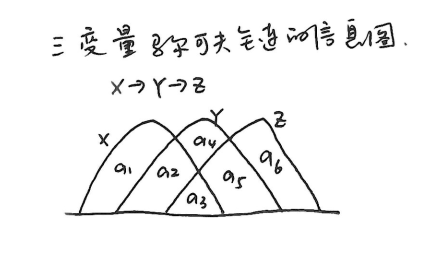 三变量马尔可夫链的信息图.
X→Y→Z
X Y Z
a1 a2 a4 a5 a6
a3